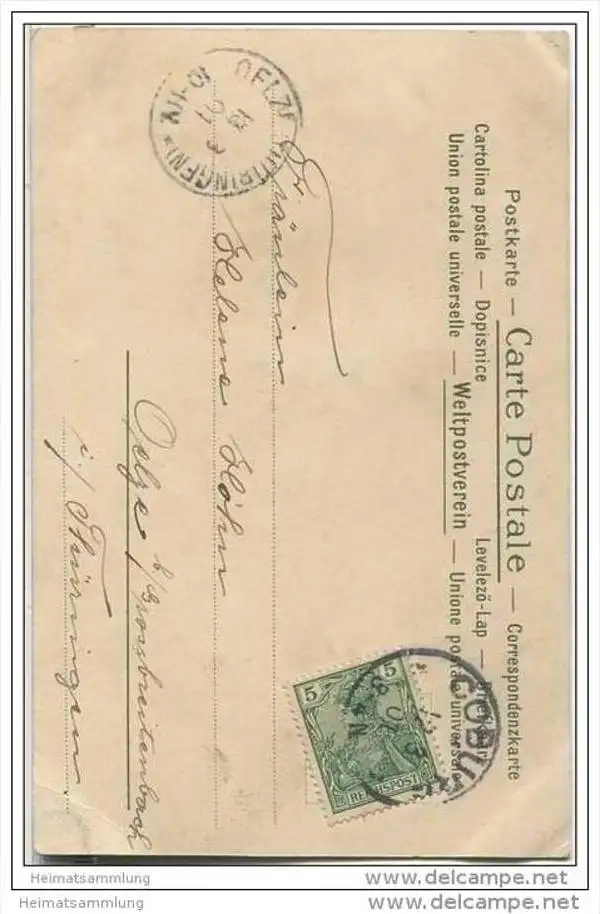 Postkarte — Carte Postale — Correspondenzkarte
Cartolina postale — Dopisnice Levelező-Lap —
Union postale universelle — Weltpostverein — Unione postale universale
5 5
REICHSPOST
COBU
OELZE
(THÜRINGEN)
Fräulein
Helene Höhn
Oelze b/Grossbreitenbach
i./ Thüringen
Heimatsammlung
Heimatsammlung
www.delcampe.net
www.delcampe.net